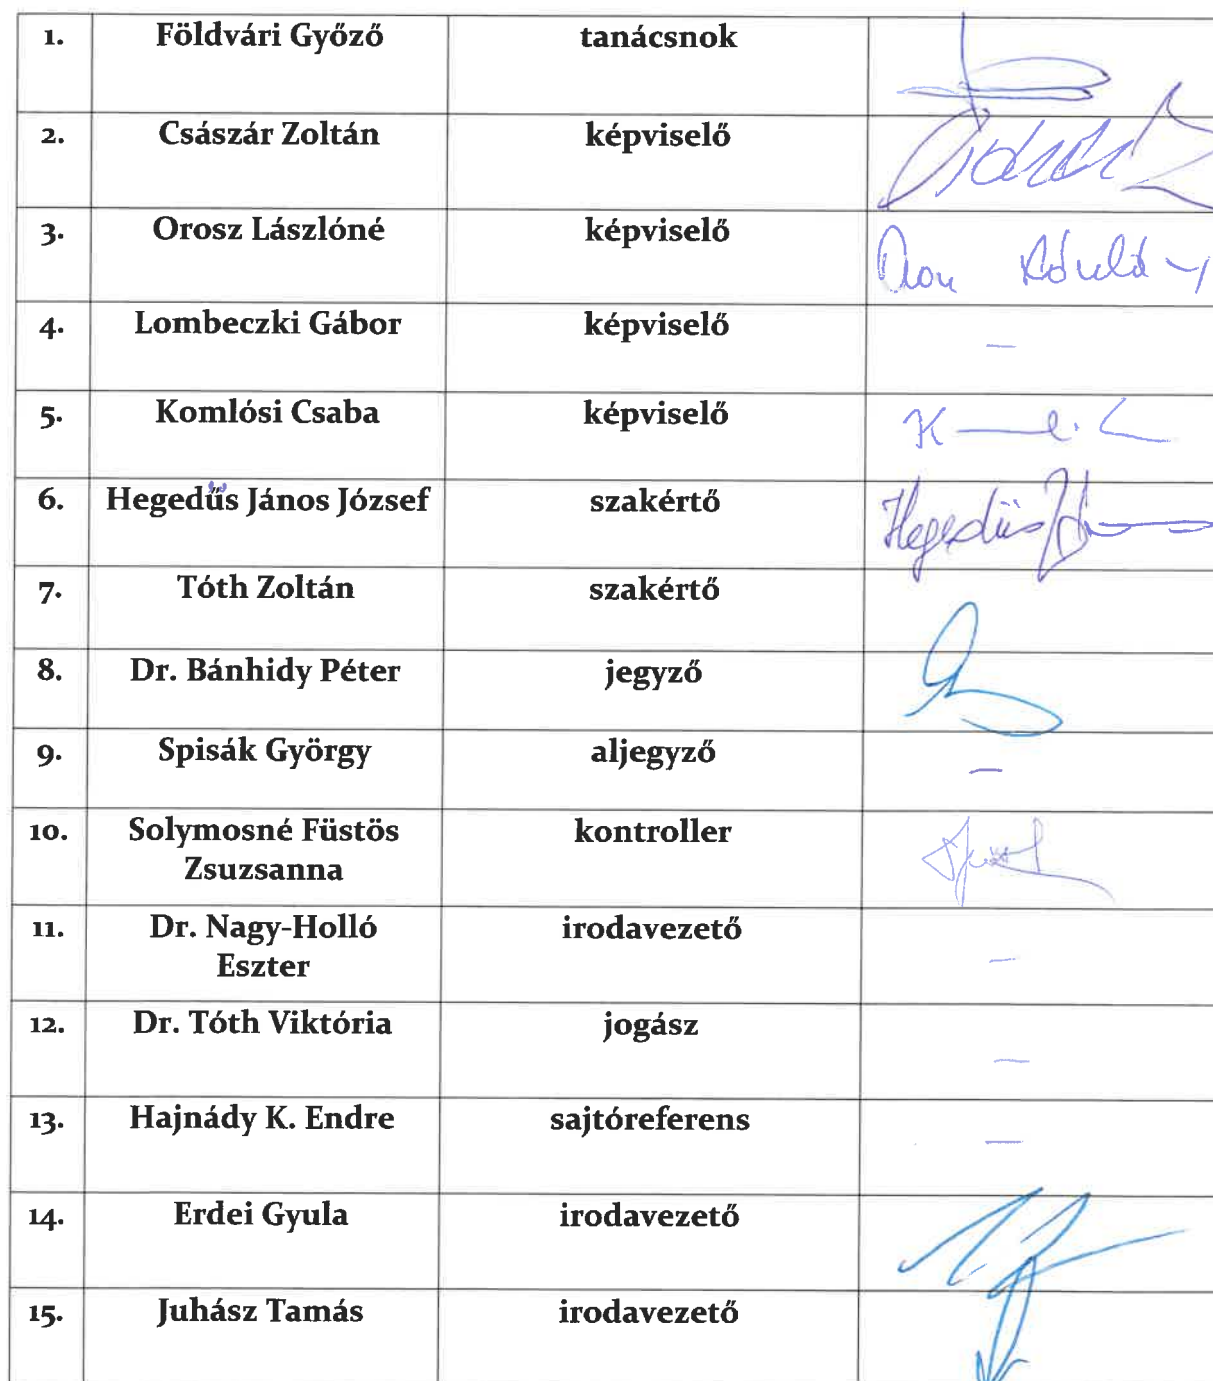 1. Földvári Győző tanácsnok
2. Császár Zoltán képviselő
3. Orosz Lászlóné képviselő
4. Lombeczki Gábor képviselő –
5. Komlósi Csaba képviselő
6. Hegedűs János József szakértő Hegedüs
7. Tóth Zoltán szakértő
8. Dr. Bánhidy Péter jegyző
9. Spisák György aljegyző –
10. Solymosné Füstös kontroller
Zsuzsanna
11. Dr. Nagy-Holló irodavezető
Eszter –
12. Dr. Tóth Viktória jogász –
13. Hajnády K. Endre sajtóreferens –
14. Erdei Gyula irodavezető
15. Juhász Tamás irodavezető